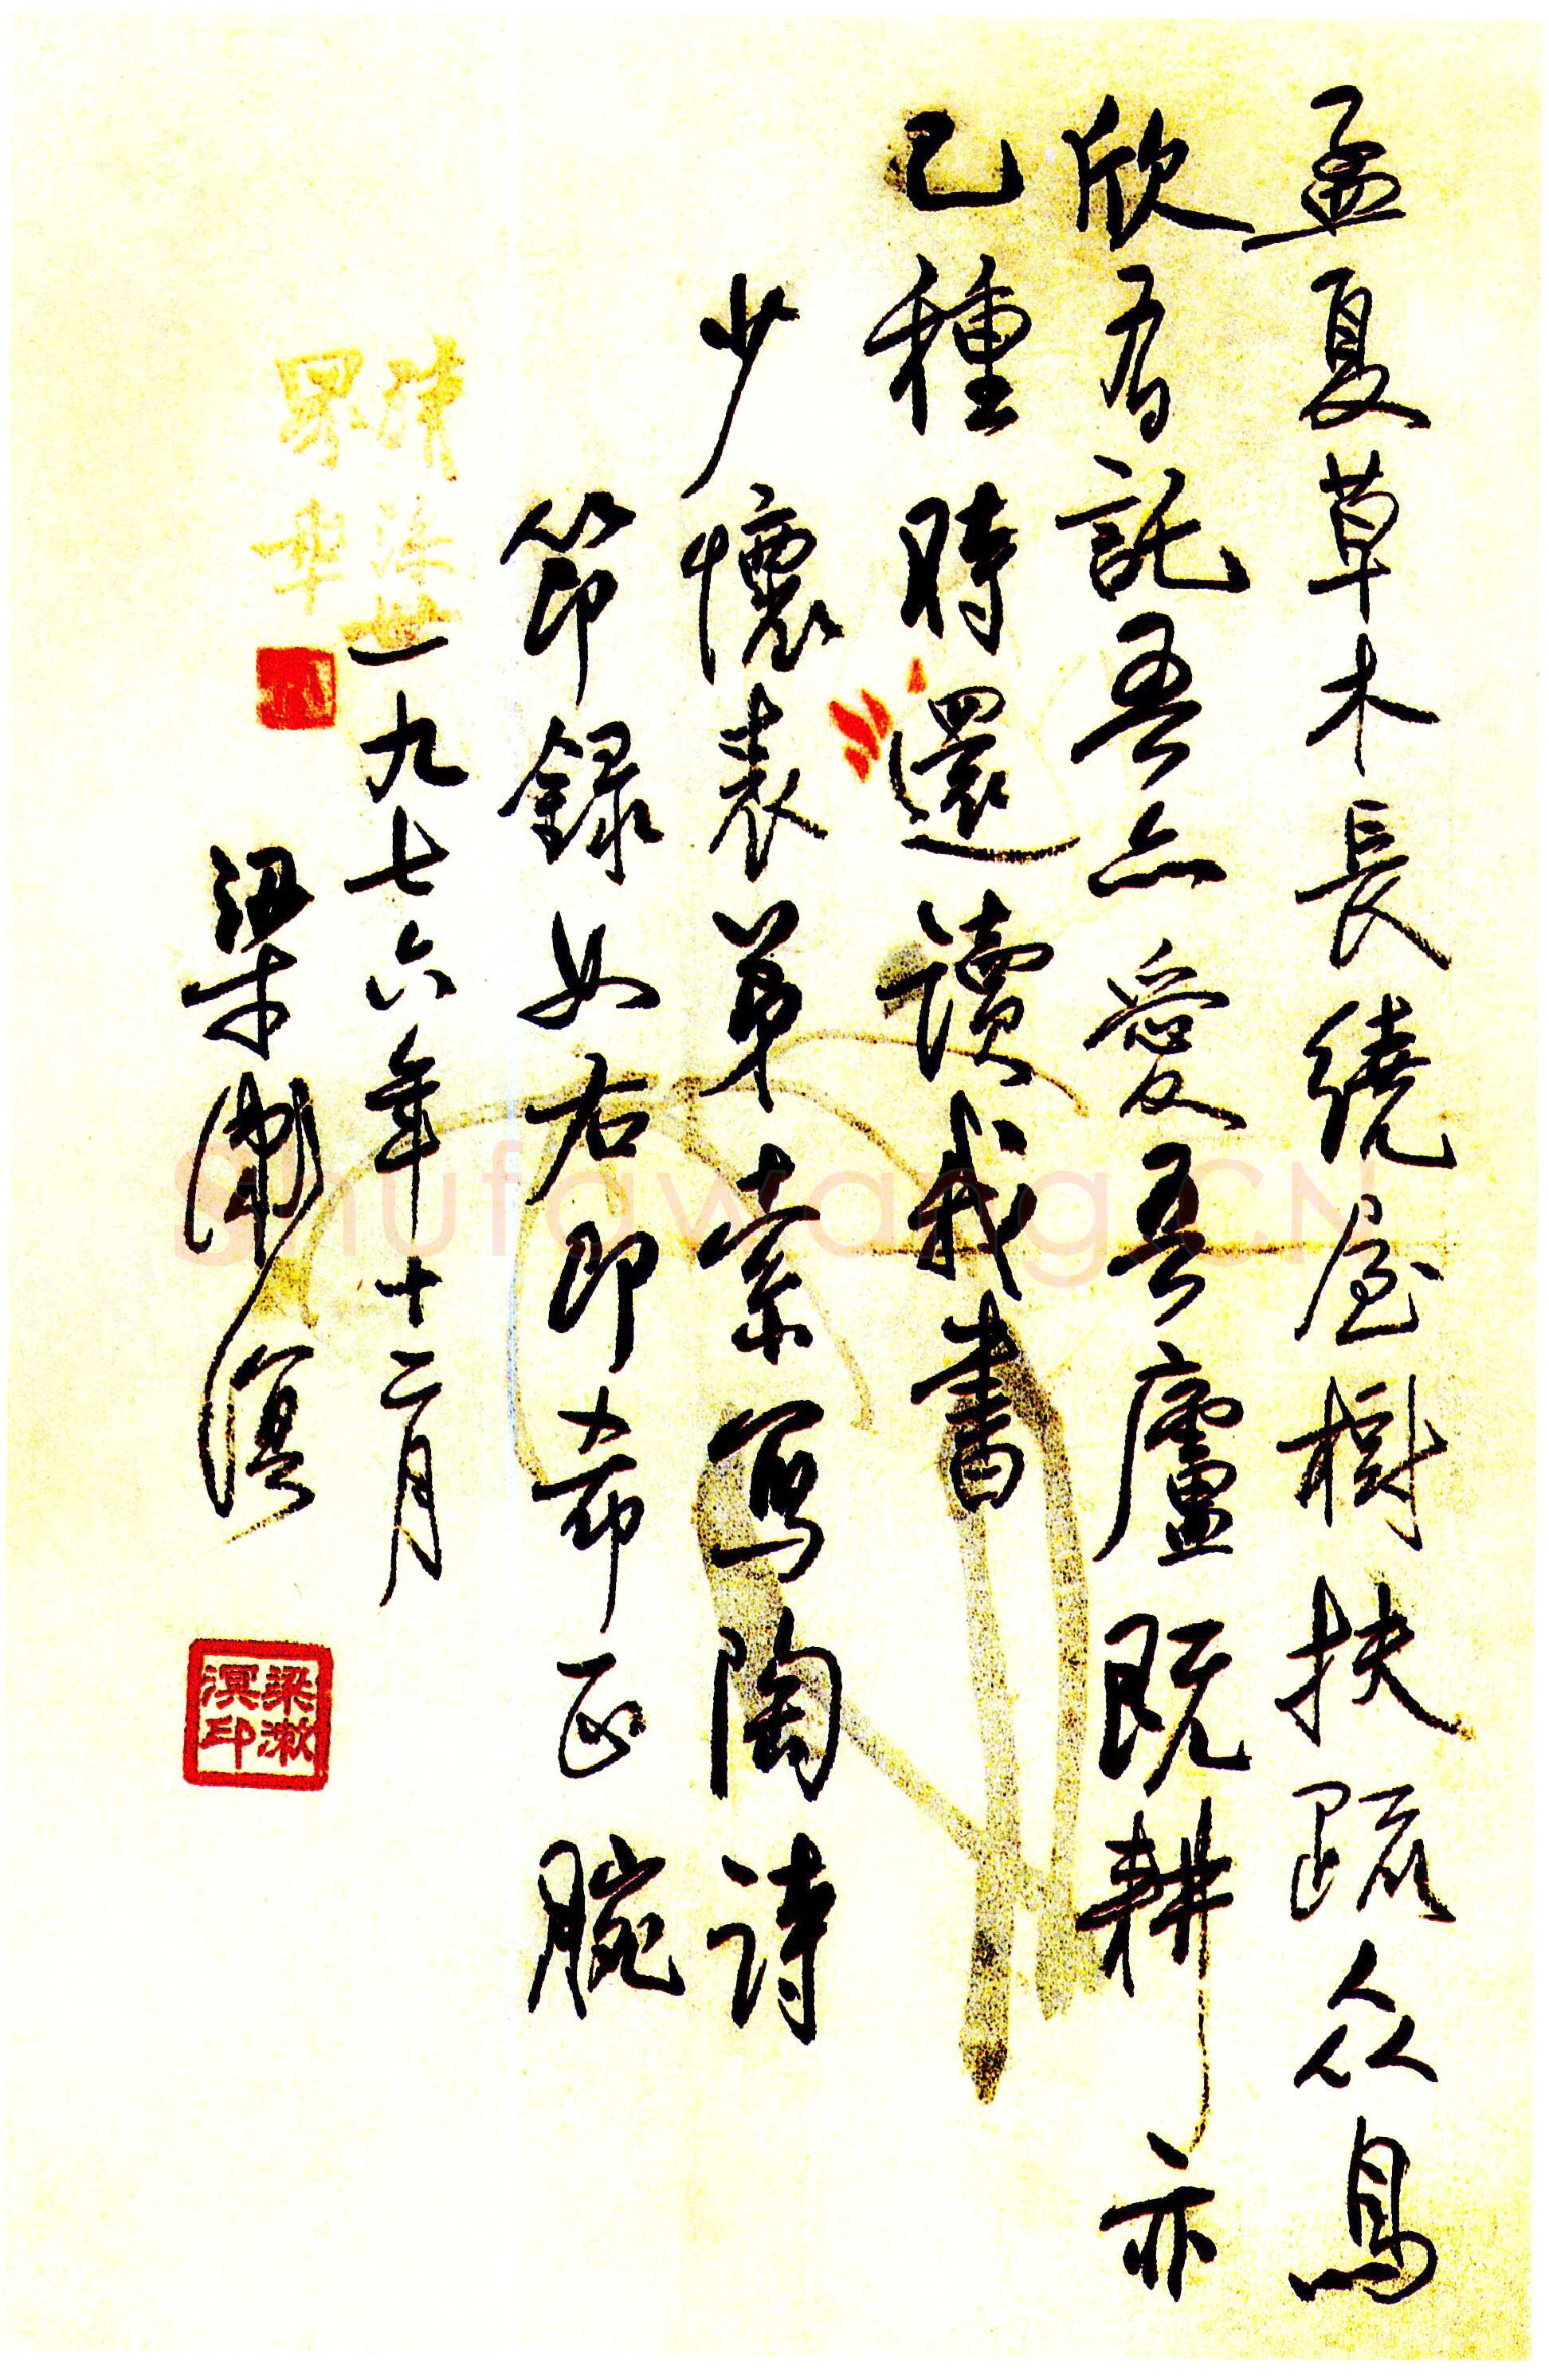 孟夏草木長繞屋樹扶疏众鳥
欣有託吾亦愛吾廬既耕亦
已種時還讀我書
少懷表弟索写陶诗
節録如右即希正腕
一九七六年十二月
梁漱溟
梁漱溟印
Shufawang.CN